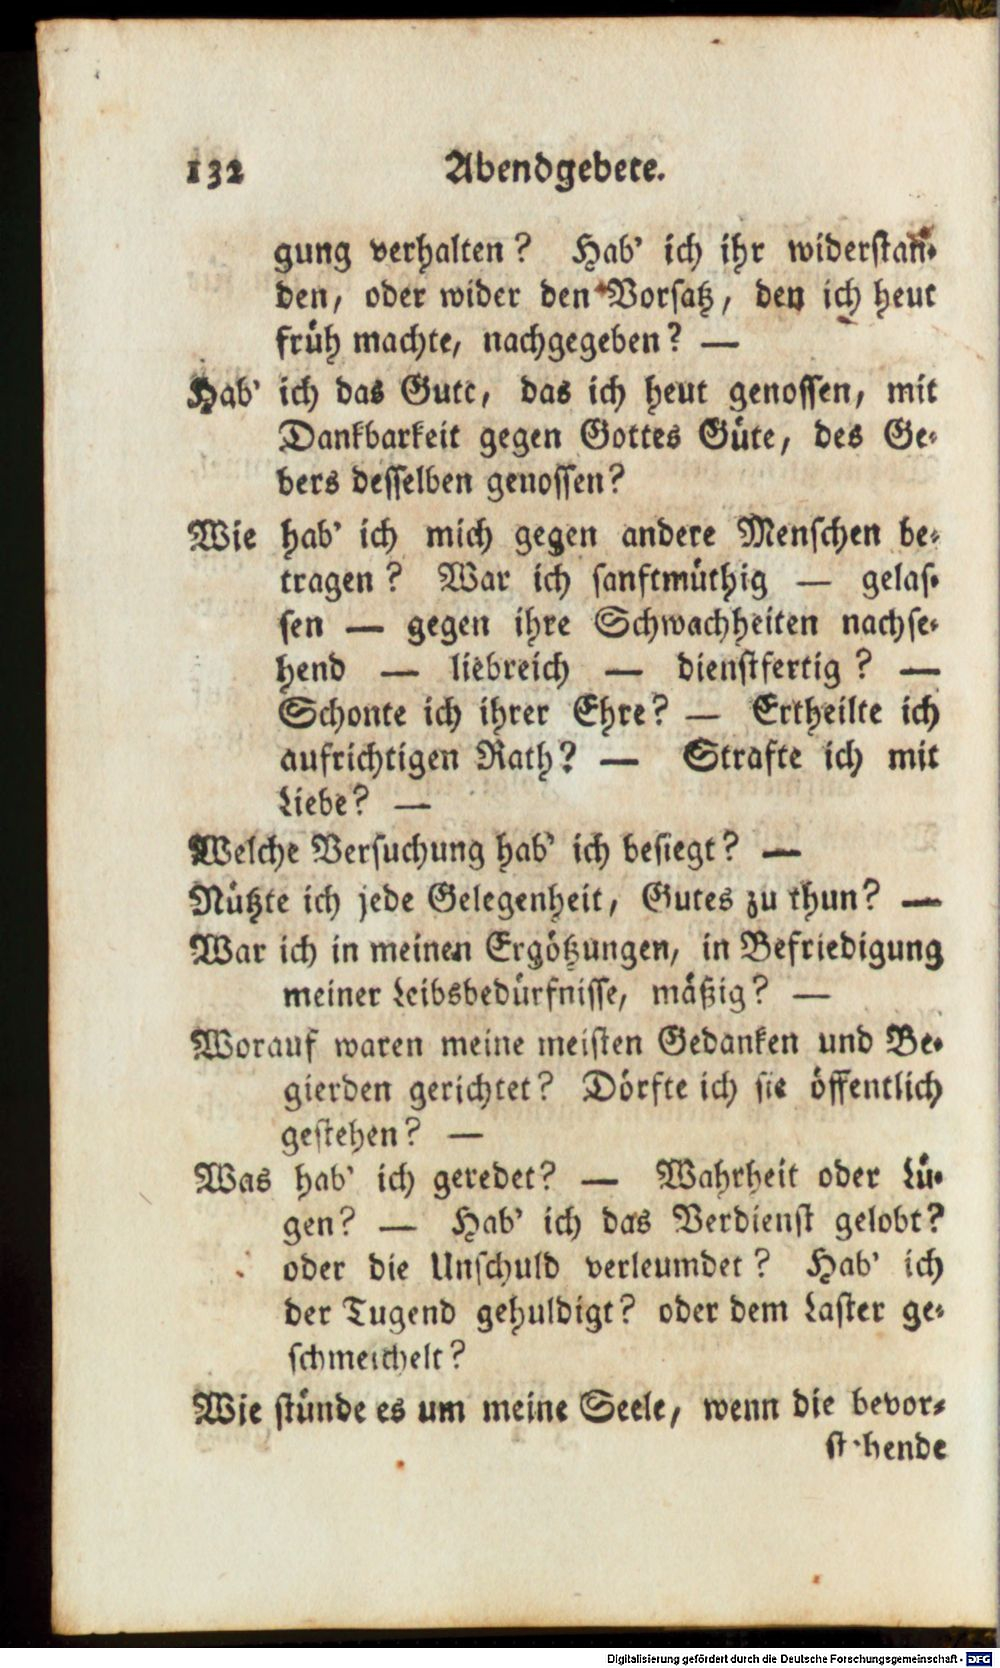 132 Abendgebete.
gung verhalten? Hab' ich ihr widerstan-
den, oder wider den Vorsatz, den ich heut
früh machte, nachgegeben? —
Hab' ich das Gute, das ich heut genossen, mit
Dankbarkeit gegen Gottes Güte, des Ge-
bers desselben genossen?
Wie hab' ich mich gegen andere Menschen be-
tragen? War ich sanftmüthig — gelas-
sen — gegen ihre Schwachheiten nachse-
hend — liebreich — dienstfertig? —
Schonte ich ihrer Ehre? — Ertheilte ich
aufrichtigen Rath? — Strafte ich mit
Liebe? —
Welche Versuchung hab' ich besiegt? —
Nützte ich jede Gelegenheit, Gutes zu thun? —
War ich in meinen Ergötzungen, in Befriedigung
meiner Leibsbedürfnisse, mäßig? —
Worauf waren meine meisten Gedanken und Be-
gierden gerichtet? Dörfte ich sie öffentlich
gestehen? —
Was hab' ich geredet? — Wahrheit oder Lü-
gen? — Hab' ich das Verdienst gelobt?
oder die Unschuld verleumdet? Hab' ich
der Tugend gehuldigt? oder dem Laster ge-
schmeichelt?
Wie stünde es um meine Seele, wenn die bevor-
stehende
Digitalisierung gefördert durch die Deutsche Forschungsgemeinschaft - DFG